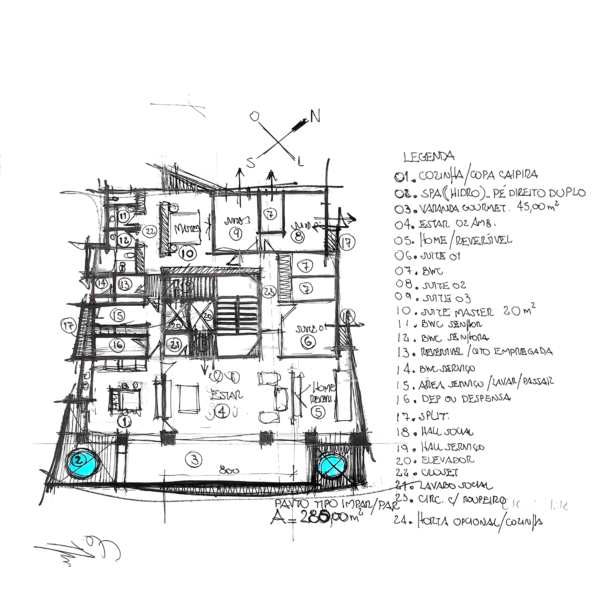 O N
S L
LEGENDA
01. COZINHA/COPA CAIPIRA
02. SPA (HIDRO) - PÉ DIREITO DUPLO
03. VARANDA GOURMET. 45,00 m²
04. ESTAR 02 AMB.
05. HOME/REVERSÍVEL
06. SUITE 01
07. BWC
08. SUITE 02
09. SUITE 03
10. SUITE MASTER 20 m²
11. BWC SENHOR
12. BWC SENHORA
13. REVERSIVEL/QTO EMPREGADA
14. BWC SERVIÇO
15. AREA SERVIÇO/LAVAR/PASSAR
16. DEP OU DESPENSA
17. SPLIT.
18. HALL SOCIAL
19. HALL SERVIÇO
20. ELEVADOR
22. CLOSET
21. LAVABO SOCIAL
23. CIRC. C/ ROUPEIRO
24. HORTA OPCIONAL/COZINHA
11 22 MASTER 10 9 7 8 17
12
14 13 23 7
7
17 15 20 20
16 21 6
ESTAR 4 HOME 5
1
2 3 800
PAVTO TIPO IMPAR/PAR
A = 285,00 m²